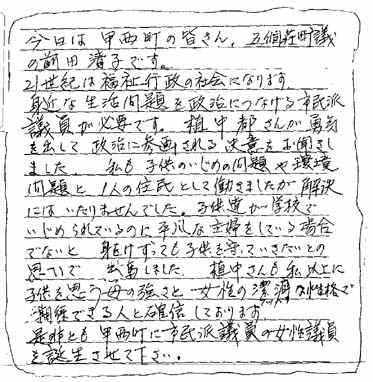 今日は 甲西町の皆さん、五個荘町議
の前田清子です。
21世紀は福祉行政の社会になります。
身近な生活問題を政治につなげる市民派
議員が必要です。植中都さんが勇気
を出して 政治に参画される 決意を お聞きし
ました。 私も 子供のいじめの問題や 環境
問題と 1人の住民として働きましたが 解決
にはいたりませんでした。子供達が学校で
いじめられているのに 平凡な主婦をしている場合
でないと 身をけずっても子供を守っていきたいとの
思いで 出馬しました。 植中さんも私以上に
子供を思う母の強さと 女性の潔癖な性格で
できる人と確信しております
是非とも 甲西町に 市民派議員の女性議員
を誕生させて下さい。